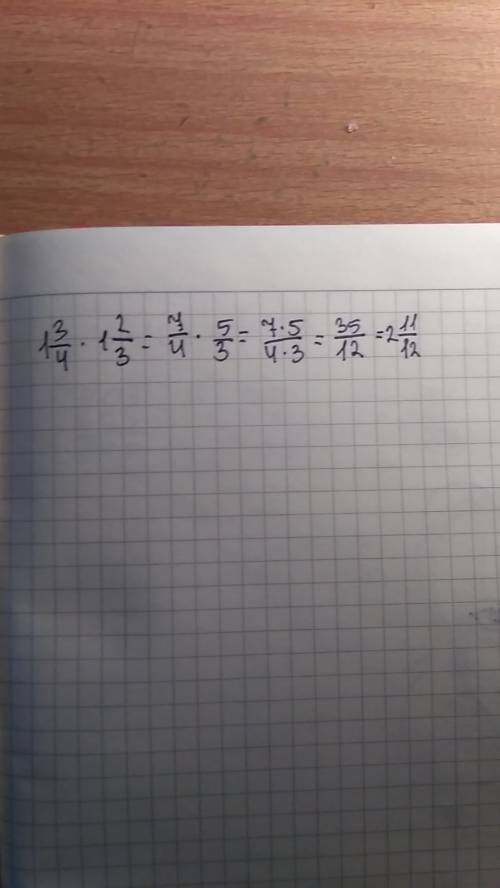 1 3/4 · 1 2/3 = 7/4 · 5/3 = 7·5/4·3 = 35/12 = 2 11/12